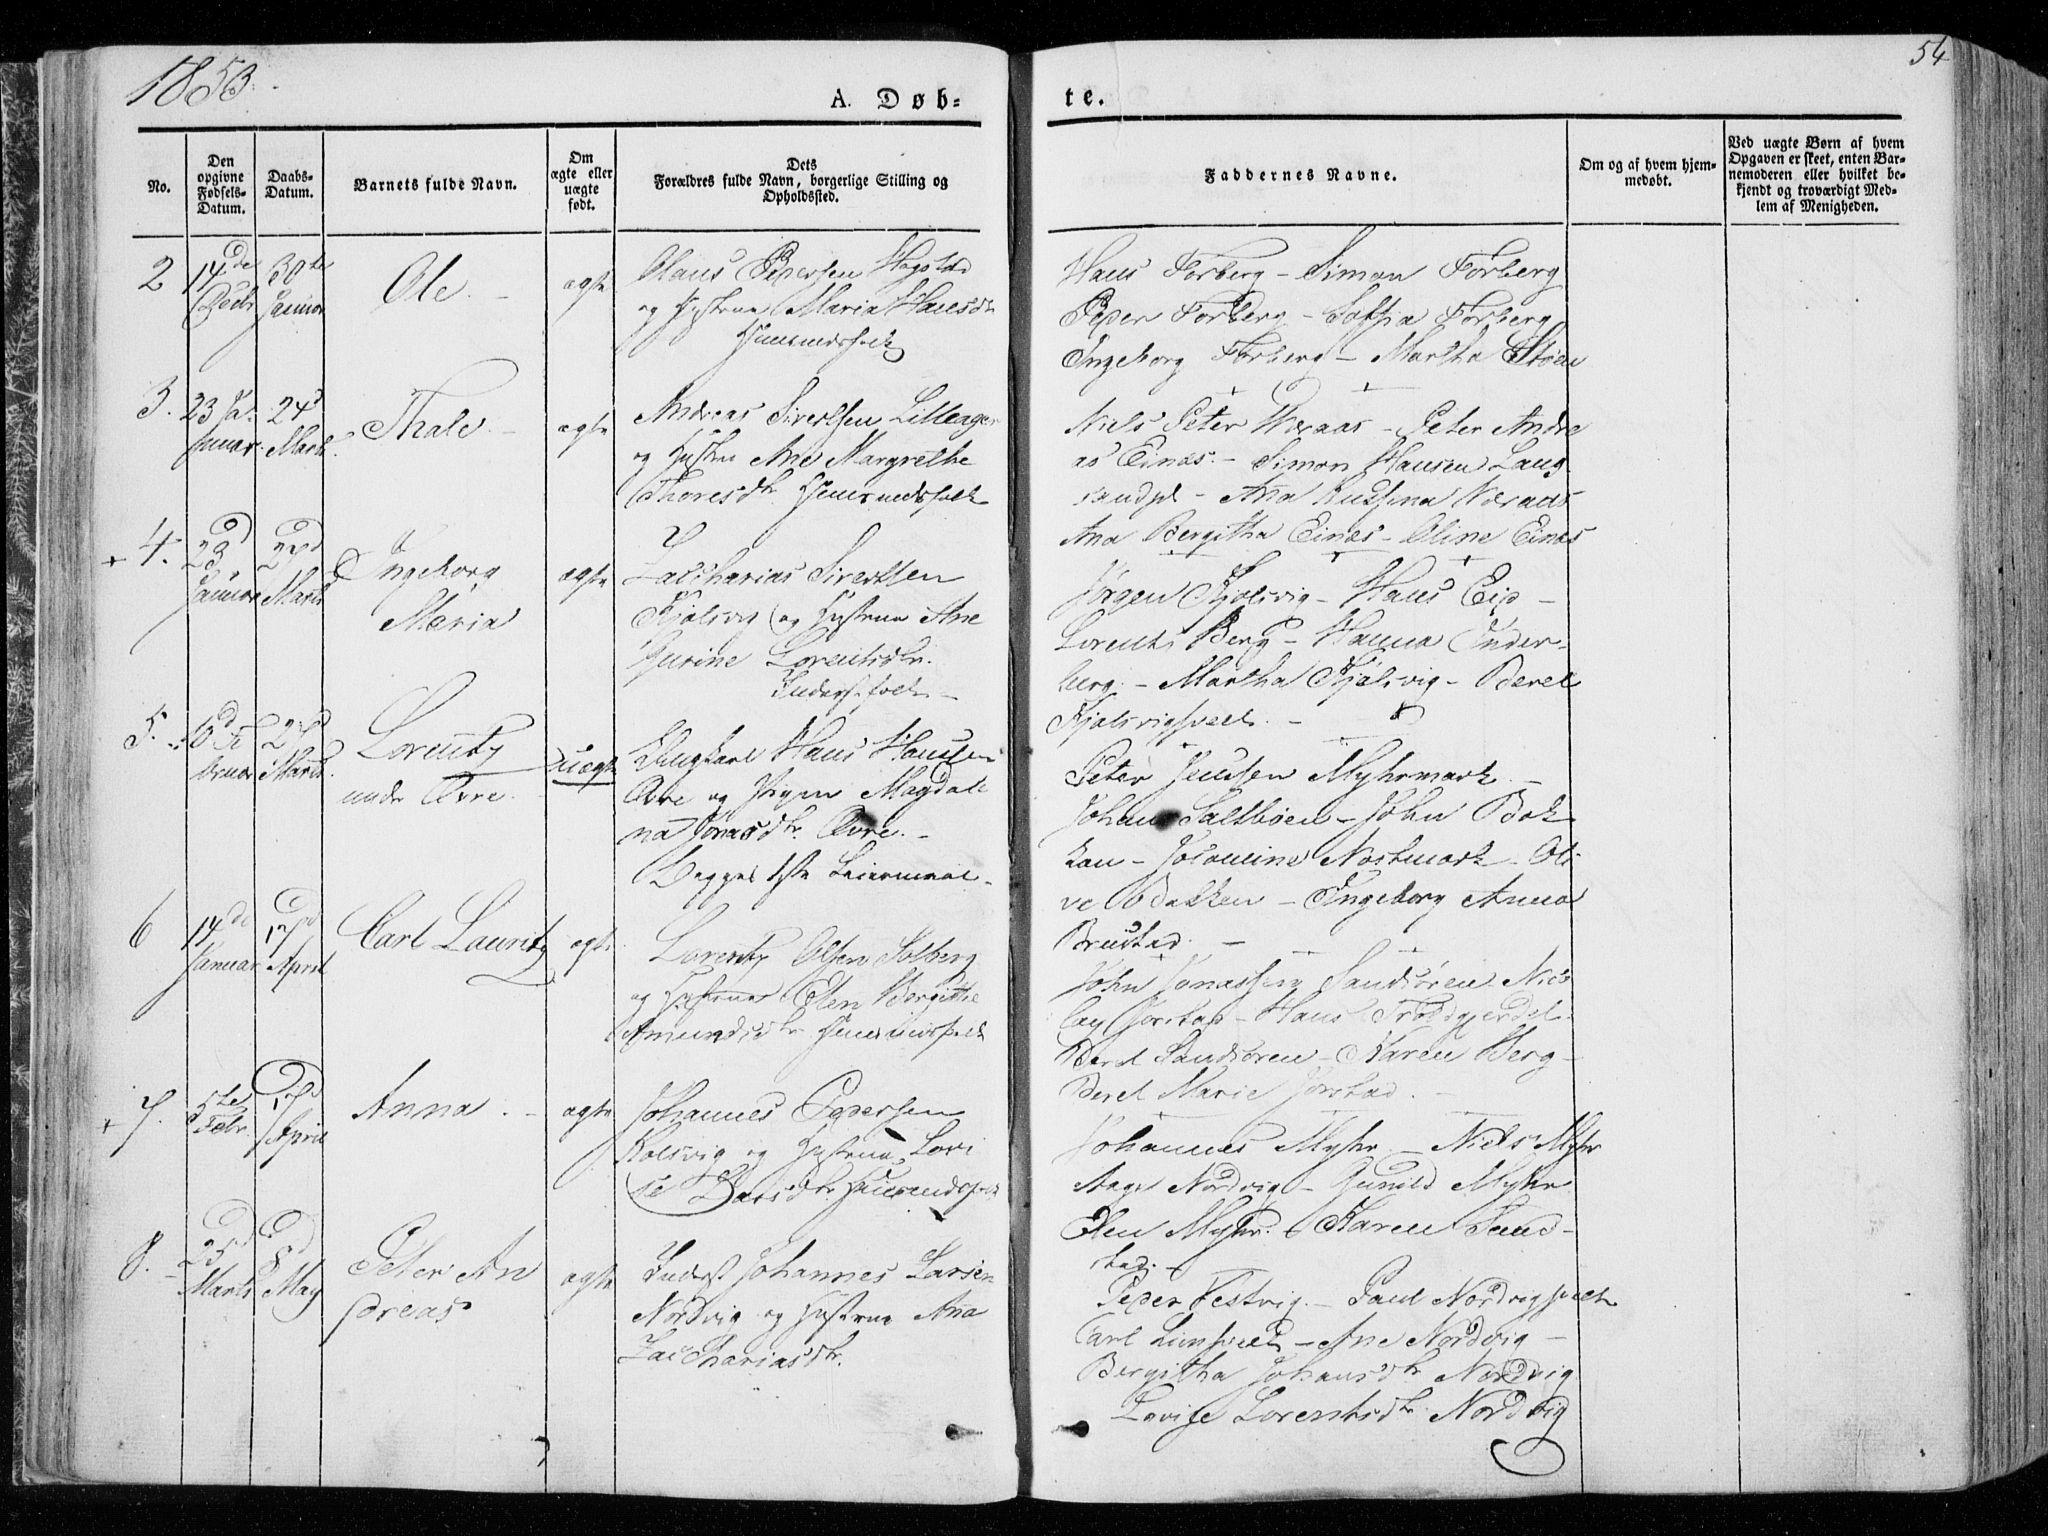 1853.
54
A. Døb-
te.
No.
Den opgivne Fødsels-Datum.
Daabs-Datum.
Barnets fulde Navn.
Om ægte eller uægte født.
Dets Forældres fulde Navn, borgerlige Stilling og Opholdssted.
Faddernes Navne.
Om og af hvem hjem-medøbt.
Ved uægte Børn af hvem Opgaven er skeet, enten Bar-nemoderen eller hvilket be-kjendt og troværdigt Med-lem af Menigheden.
2
14de Decbr
30te Januar
Ole.
ægte
Olaus Pedersen
og Hustrue Maria Hansdr
Huusmandsfolk
Hans Forberg - Simon Forberg
Peder Forberg - Soffia Forberg
Ingeborg Forberg - Martha Støen
3.
23 Januar.
24d Marts.
Thale.
ægte
Andreas Sivertsen Lilleager
og Hustru Ane Margrethe
Thoresdr. Huusmandsfolk
Niels Peter Næraas - Peter Andre
as Einæs. - Simon Hansen Lang
Ana Næraas
Ana Bergitha Einæs - Oline Einæs
4.
23d Januar
27d Marts
Ingeborg
Maria
ægte
Zacharias Sivertsen
Kjølsvig og Hustrue Ane
Lorentsdr.
Inderstfolk -
Jørgen Kjølsvig - Hans Eid -
Lorents Berg - Hanna Inder-
berg. - Martha Kjølsvig - Beret
5.
Februar
27d Marts.
Lorentz
Øvre.
uægte
Ungkarl Hans Hansen
Øvre og Pigen Magdale
na Jonasdr. Øvre. -
Begges 1ste Leiermaal -
Peter Jensen Myhrmark -
Johan Saltbøen - John Bak
ken - Nostmark - Oli
ve Bakken - Ingeborg Anna
Brustad. -
6
14de Januar
17d April
Carl Lauritz
ægte
Lorentz Olsen Solberg
og Hustrue Elen Bergitte
Amundsdr. Huusmandsfolk
John Jonassen Sandsøren Nico
lay Jørstad - Hans
Beret Sandsøren - Karen Berg -
Beret Marie Jørstad. -
7.
5te Febr.
17d April
Anna. -
ægte
Johannes Pedersen
Kølsvig og Hustrue Lovi
se Huusmandsfolk
Johannes Myhr - Niels Myhr
Nordvig - Gunild Myhr
Elen Myhr. - Karen Sund-
stad. -
8.
25d Marts
8d May
Peter An
dreas
ægte
Inderst Johannes Larsen
Nordvig og Hustrue Ana
Zachariasdr.
Peder Vestvig. - Paul
Carl - Ane Nordvig -
Bergitha Johansdr Nordvig
Lovise Lorentsdr. Nordvig